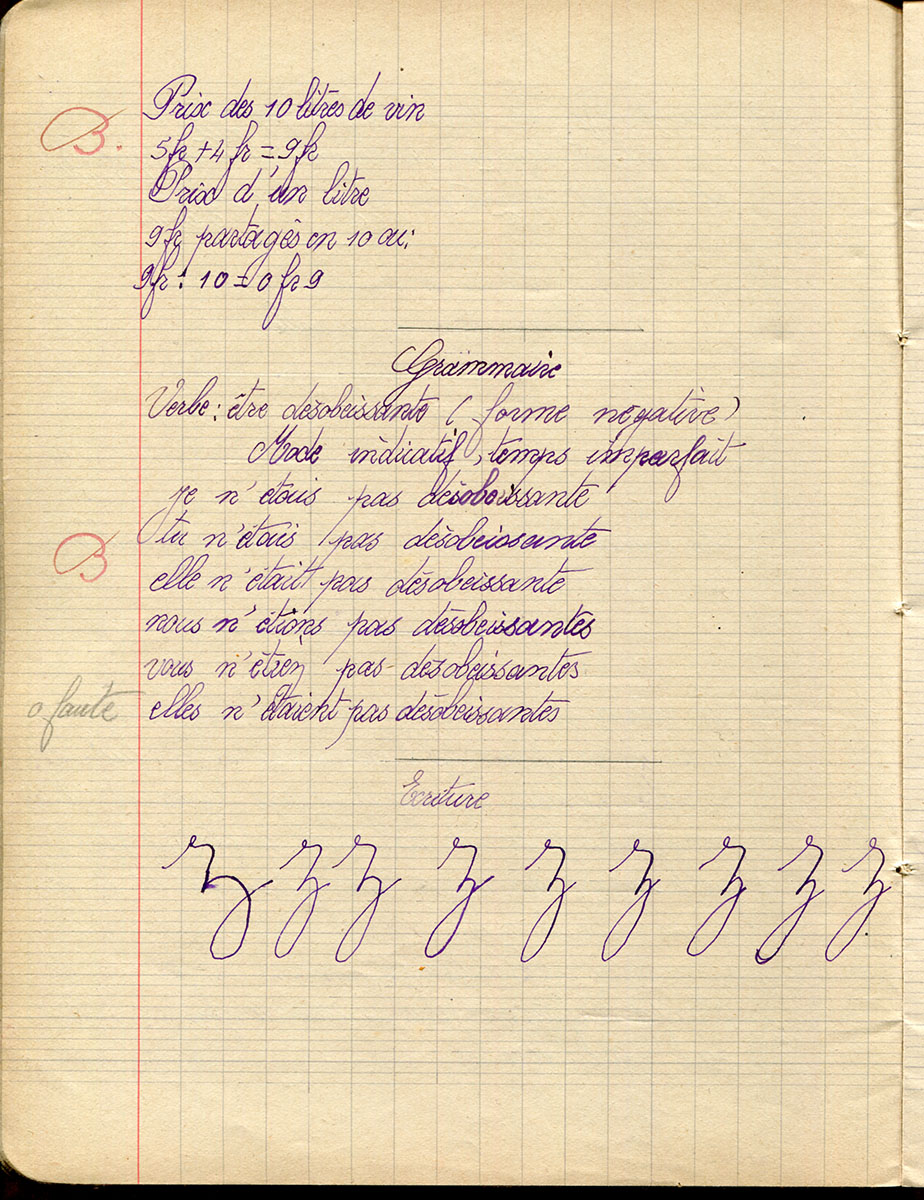 Prix des 10 litres de vin
B.
5fr + 4 fr = 9fr
Prix d'un litre
9fr partagés en 10 ou:
9fr : 10 = 0 fr 9
Grammaire
Verbe: être désobeissante (forme négative)
Mode indicatif, temps imparfait
je n'étais pas désobeissante
tu n'étais pas désobeissante
B
elle n'était pas désobeissante
nous n'étions pas désobeissantes
vous n'étiez pas désobeissantes
0 faute
elles n'étaient pas désobeissantes
Ecriture
z z z z z z z z z